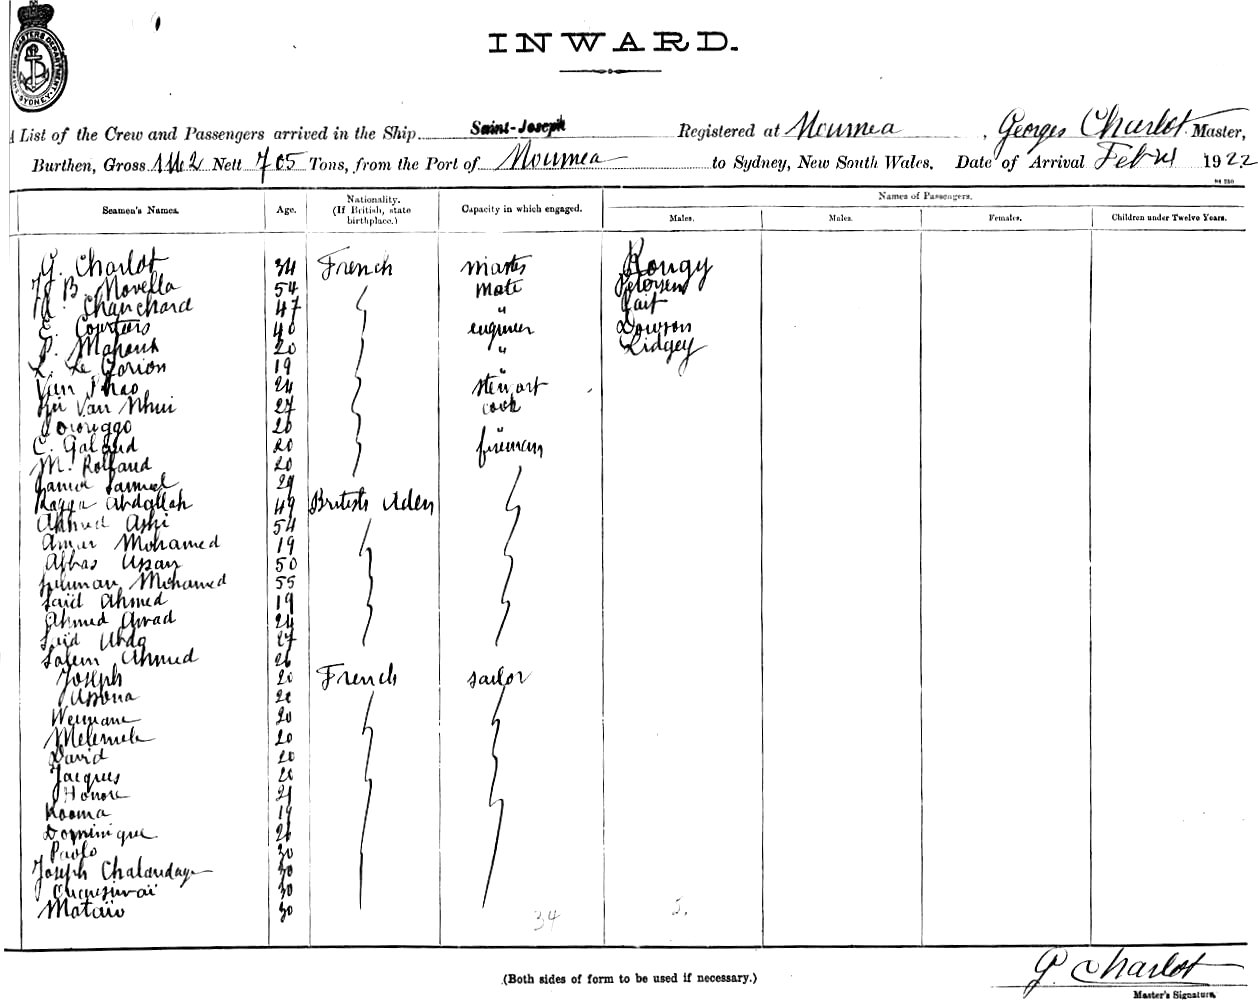 SHIPPING MASTERS DEPARTMENT SYDNEY
INWARD.
List of the Crew and Passengers arrived in the Ship Saint-Joseph Registered at Noumea, Georges Charlot Master,
Burthen, Gross 1142 Nett 705 Tons, from the Port of Noumea to Sydney, New South Wales. Date of Arrival Feb 21 1922
Names of Passengers.
Seamen's Names. Age. Nationality. (If British, state birthplace.) Capacity in which engaged. Males. Males. Females. Children under Twelve Years.
G. Charlot 34 French master Rougy
J. B. Novella 54 mate Petersen
Chanchard 47 " Gait
E. 40 engineer Dawson
P. 20 " Lidgey
L. Le 19 "
Van Thao 24 stewart
Van Nhui 27 cook
20 "
C. Galaud 20 fireman
M. Rolland 20
Samuel 29
Ragga Abdallah 49 British Aden
Ahmed 54
Amar Mohamed 19
Abbas 50
Mohamed 55
Saïd Ahmed 19
Ahmed Awad 24
Saïd 27
Salem Ahmed 26
Joseph 20 French sailor
20
20
20
David 20
Jacques 20
Honore 21
Kaoma 19
Dominique 26
Paolo 30
Joseph 30
30
Mataïo 30
34 5.
(Both sides of form to be used if necessary.)
G. Charlot
Master's Signature.